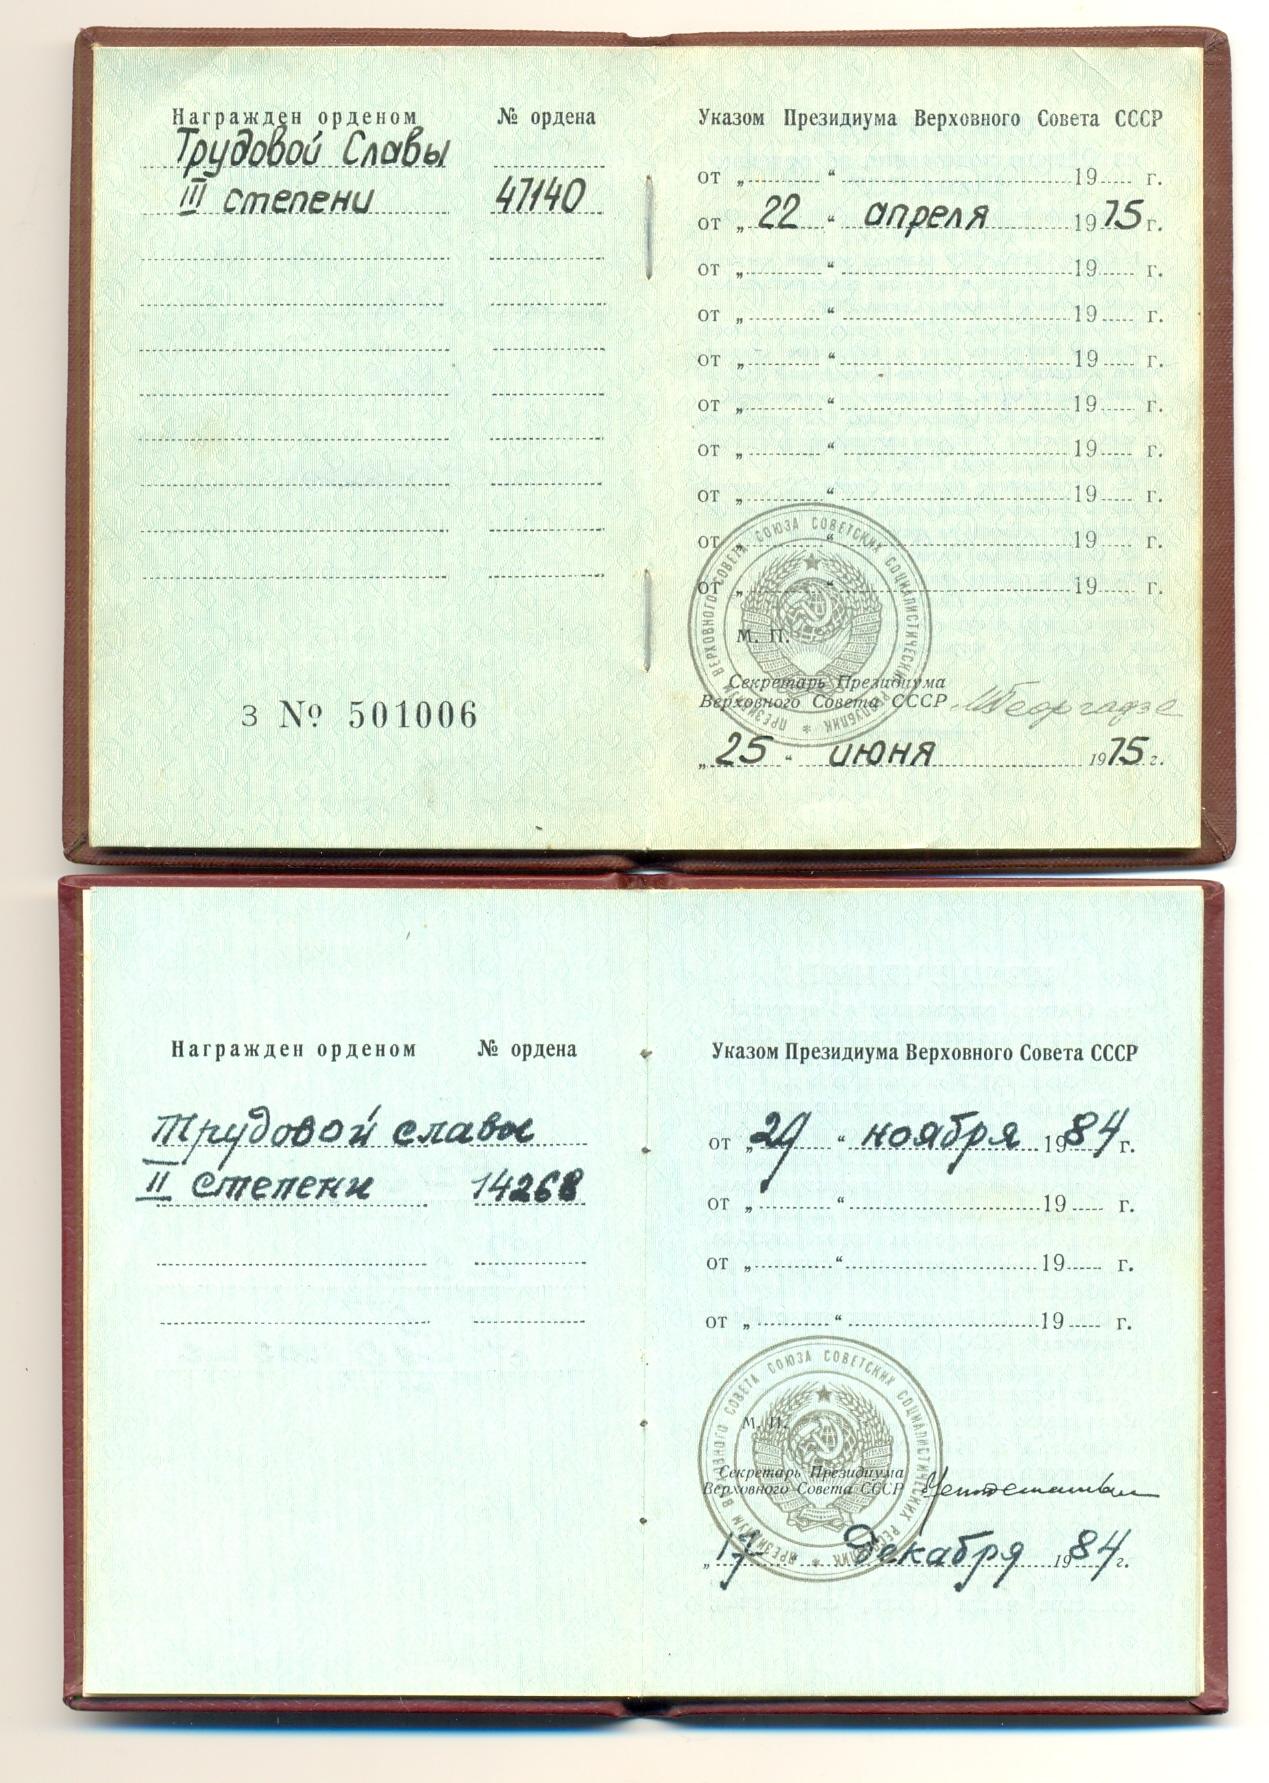 Награжден орденом № ордена
Трудовой Славы
III степени 47140
З № 501006
Указом Президиума Верховного Совета СССР
от „ “ 19 г.
от „ 22 “ апреля 1975 г.
от „ “ 19 г.
от „ “ 19 г.
от „ “ 19 г.
от „ “ 19 г.
от „ “ 19 г.
от „ “ 19 г.
от „ “ 19 г.
от „ “ 19 г.
ПРЕЗИДИУМ ВЕРХОВНОГО СОВЕТА СОЮЗА СОВЕТСКИХ СОЦИАЛИСТИЧЕСКИХ РЕСПУБЛИК
М. П.
Секретарь Президиума
Верховного Совета СССР МГеоргадзе
„ 25 “ июня 1975 г.
Награжден орденом № ордена
Трудовой славы
II степени 14268
Указом Президиума Верховного Совета СССР
от „ 29 “ ноября 1984 г.
от „ “ 19 г.
от „ “ 19 г.
от „ “ 19 г.
ПРЕЗИДИУМ ВЕРХОВНОГО СОВЕТА СОЮЗА СОВЕТСКИХ СОЦИАЛИСТИЧЕСКИХ РЕСПУБЛИК
М. П.
Секретарь Президиума
Верховного Совета СССР
„ 17 “ декабря 1984 г.